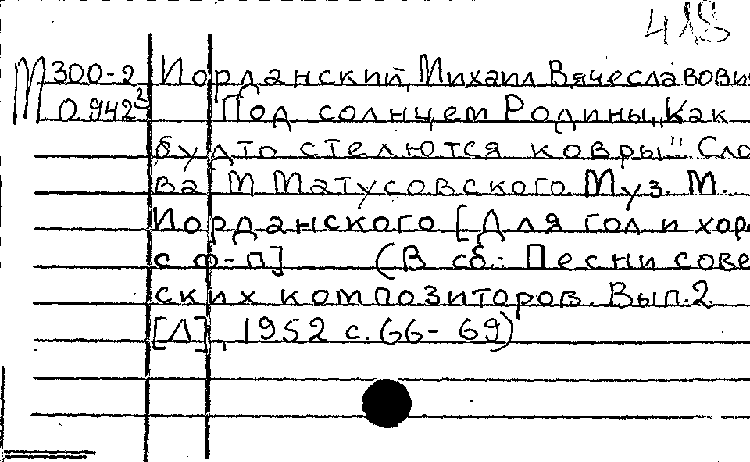 418
М 300-2 Иорданский, Михаил Вячеславови
0 942³ Под солнцем Родины „Как
будто стелются ковры" Сло
ва М Матусовского Муз. М.
Иорданского [Для гол и хор
с ф-п] (В сб.: Песни сове
ских композиторов. Вып. 2
[Л], 1952 с. 66-69)